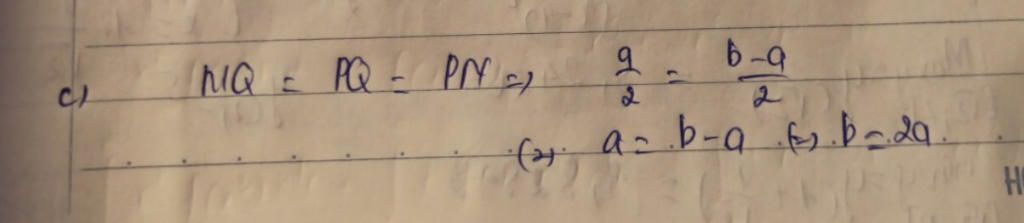 c) MQ = PQ = PN => a/2 = b-a/2
(=) a = b-a (=) b = 2a.
H